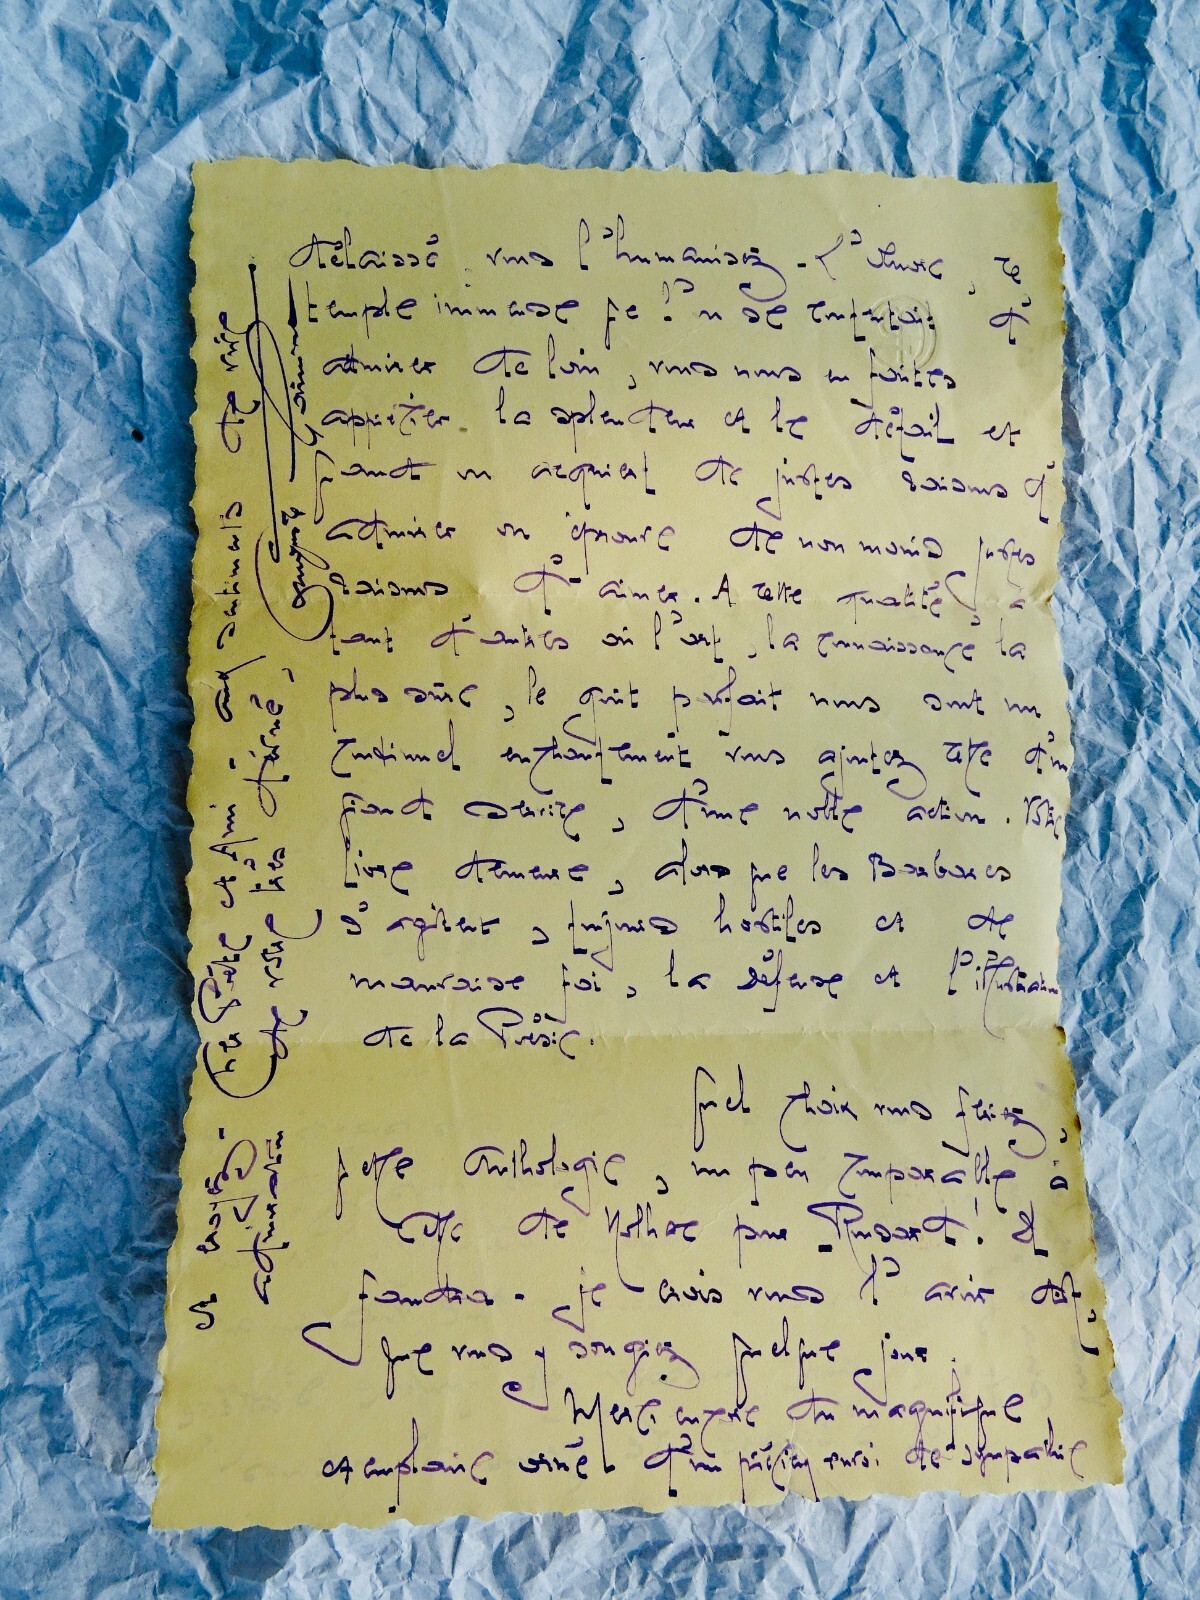 délaissé, vous l'humanisez - L'Œuvre, ce
temple immense que l'on se contentait d'
admirer de loin, vous nous en faites
apprécier la splendeur et le détail et
quand on acquiert de justes raisons d'
admirer on éprouve de non moins justes
raisons d'aimer. A cette qualité, à
tant d'autres où l'art, la connaissance la
plus sûre, le goût parfait nous sont un
continuel enchantement vous ajoutez celle d'un
grand service, d'une noble action. Votre
livre demeure, alors que les Barbares
s'agitent, toujours hostiles et de
mauvaise foi, la Défense et l'illustration
de la Poésie.
Quel choix vous feriez,
quelle Anthologie, un peu comparable à
celle de Nolhac pour Ronsard! Et
faudra - je crois vous l'avoir dit,
que vous y songiez quelque jour.
Merci encore du magnifique
exemplaire orné d'un précieux envoi de sympathie
et croyez - cher Poète et Ami - aux sentiments de vive
admiration de votre très dévoué,